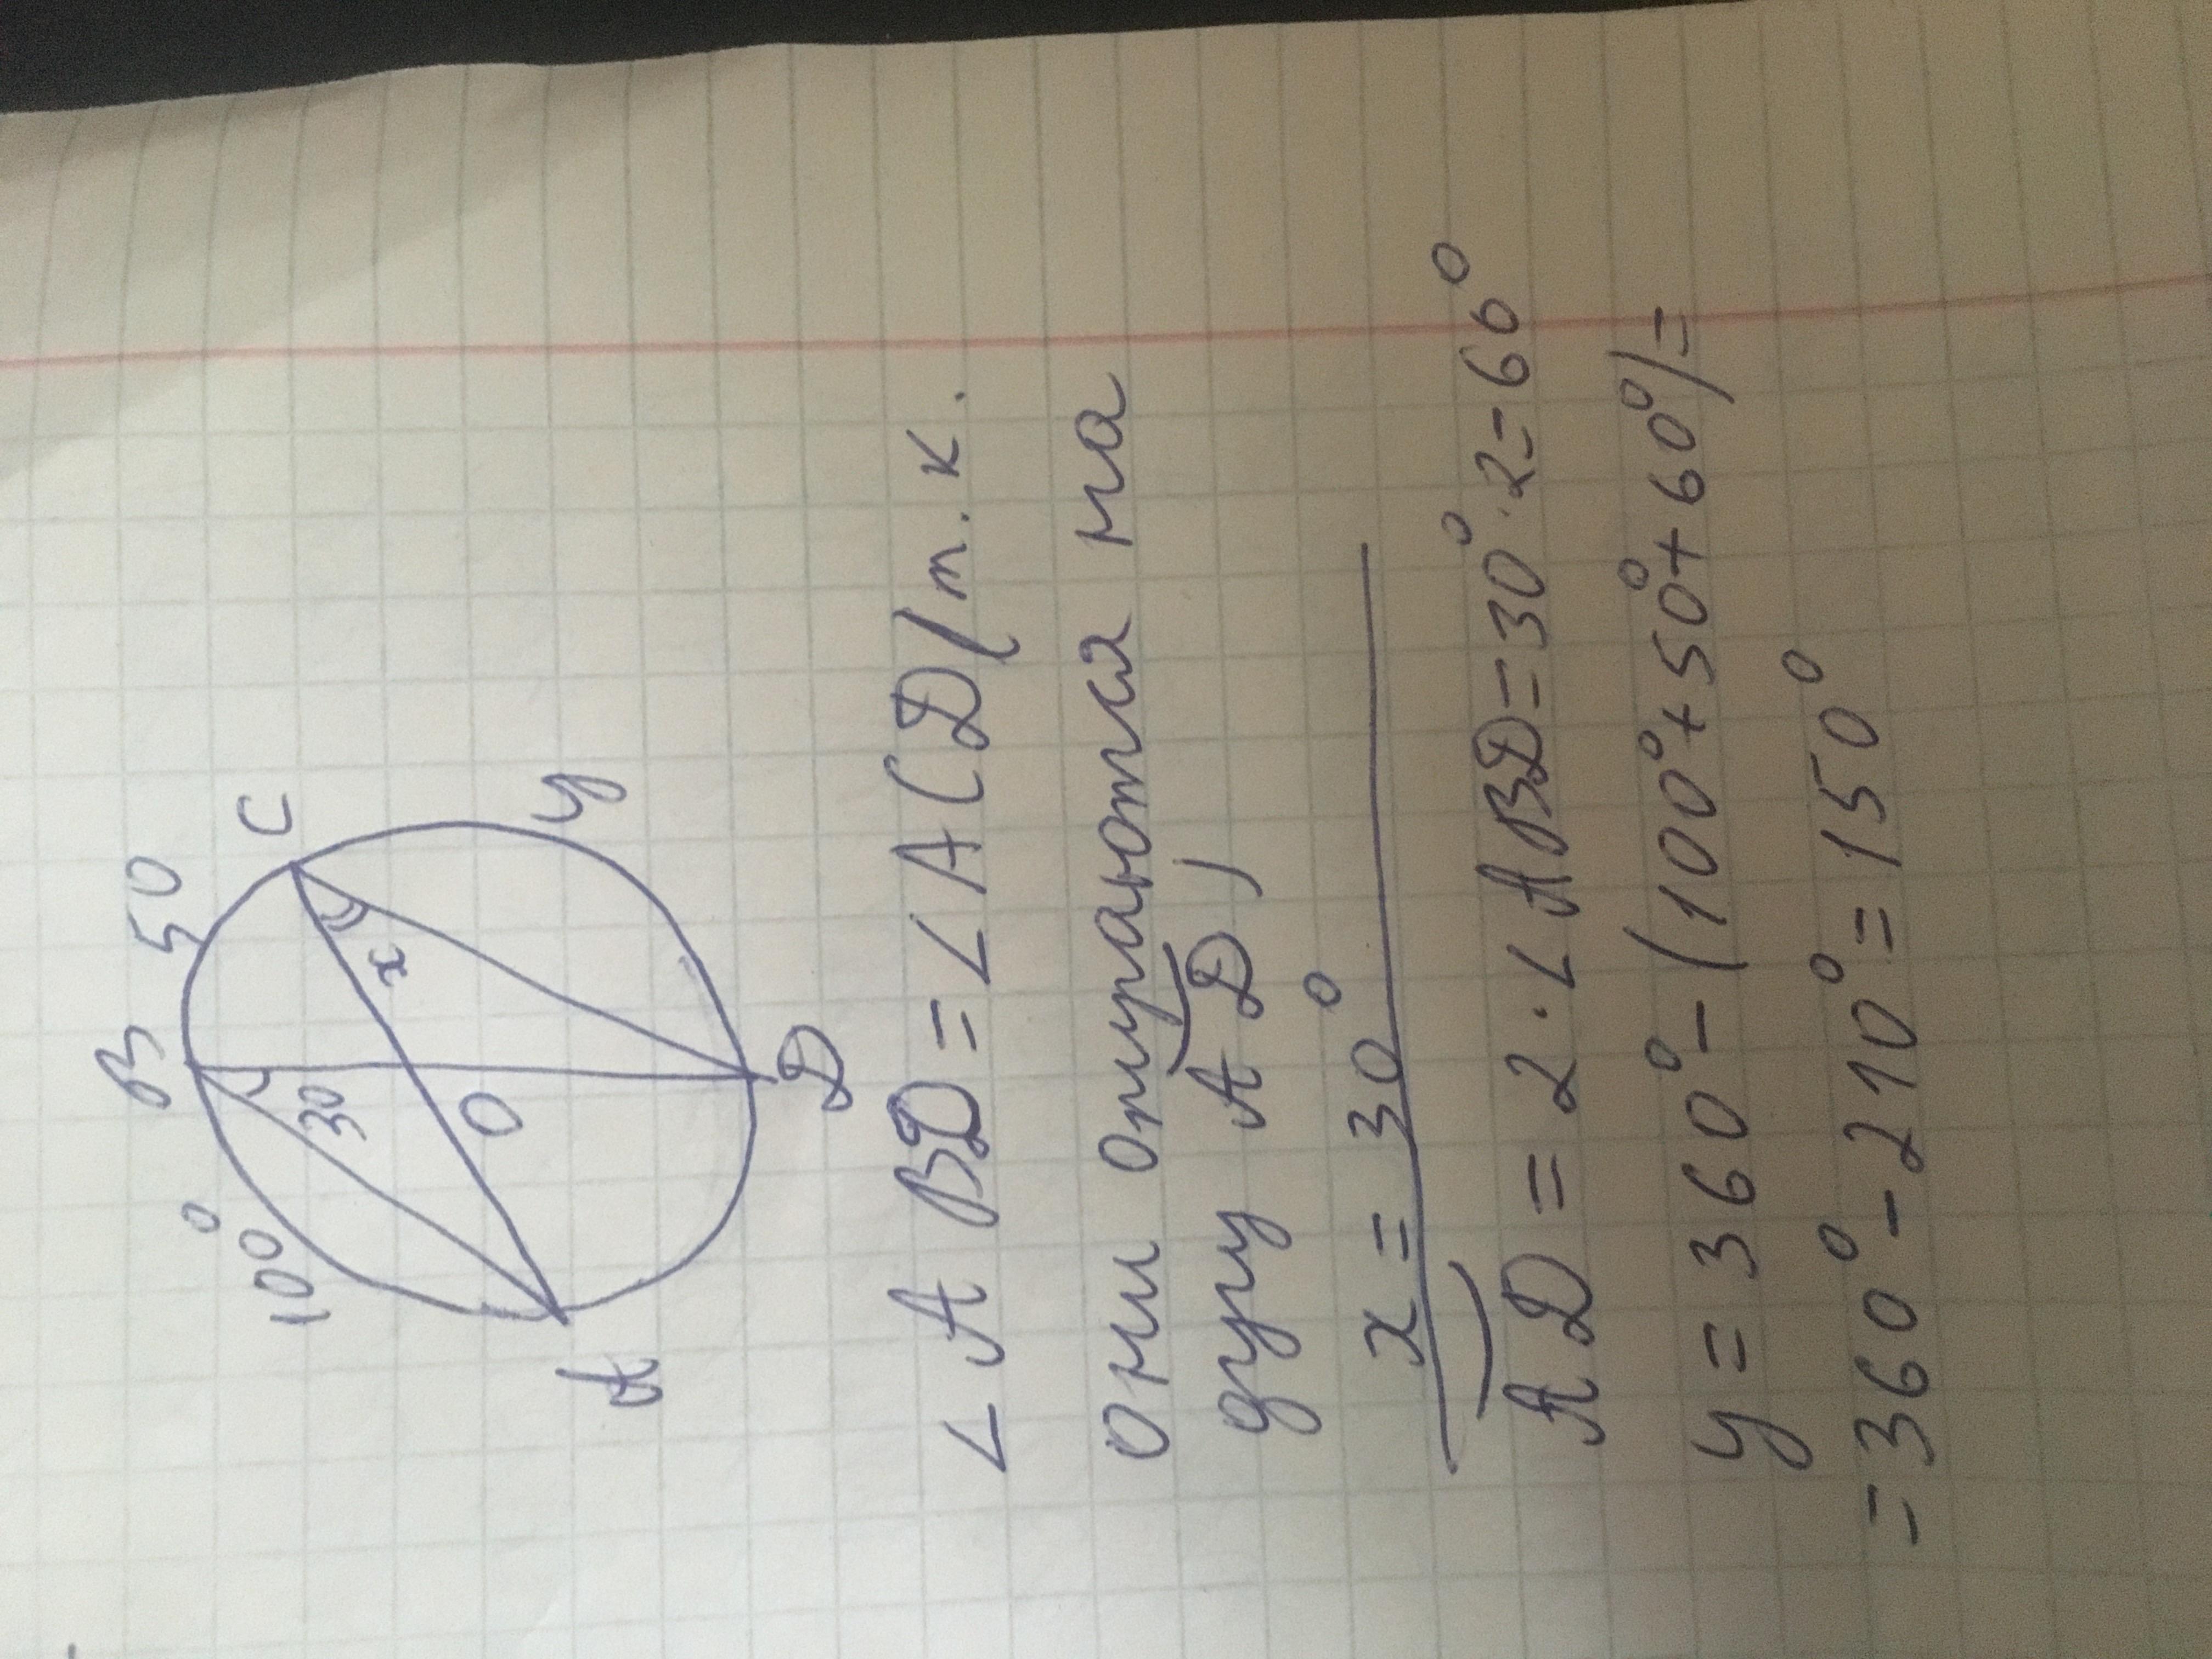 B 50 C
100°
30 x
O y
A D
∠ABD = ∠ACD (т.к.
они опираются на
дугу AD)
x = 30°
AD = 2 · ∠ABD = 30° · 2 = 60°
y = 360° - (100° + 50° + 60°) =
= 360° - 210° = 150°